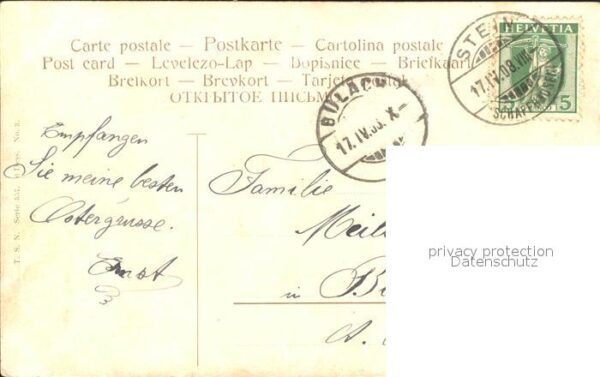 Carte postale – Postkarte – Cartolina postale
Post card – Levelezo-Lap – Dopisnice – Briefkaart
Brefkort – Brevkort – Tarjeta postal
ОТКРЫТОЕ ПИСЬМО
HELVETIA
5
STEIN
17.IV.08.VIII
SCHAFFHAUSEN
BÜLACH
17.IV.08. X–
T. S. N. Serie 557. No. 3.
Empfangen
Sie meine besten
Ostergrüsse.
Ernst
Familie
Meil
in B
privacy protection
Datenschutz